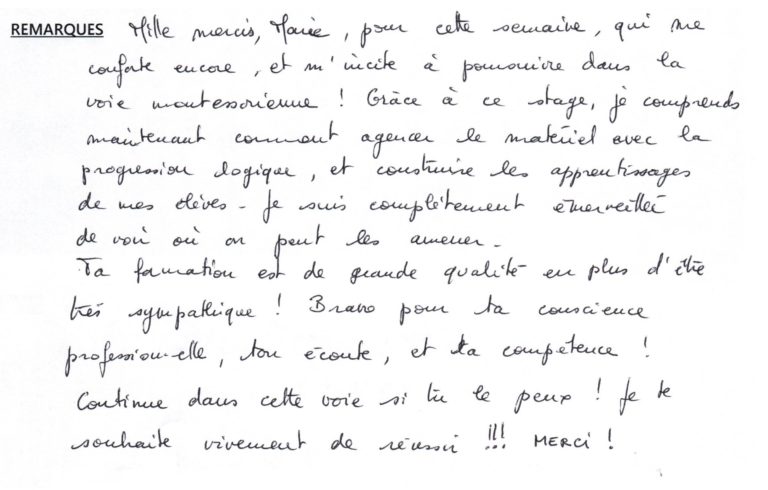 REMARQUES Mille mercis, Marie, pour cette semaine, qui me
conforte encore, et m'incite à poursuivre dans la
voie montessorienne ! Grâce à ce stage, je comprends
maintenant comment agencer le matériel avec la
progression logique, et construire les apprentissages
de mes élèves - Je suis complètement émerveillée
de voir où on peut les amener -
Ta formation est de grande qualité en plus d'être
très sympathique ! Bravo pour ta conscience
professionnelle, ton écoute, et ta compétence !
Continue dans cette voie si tu le peux ! Je te
souhaite vivement de réussir !!! MERCI !